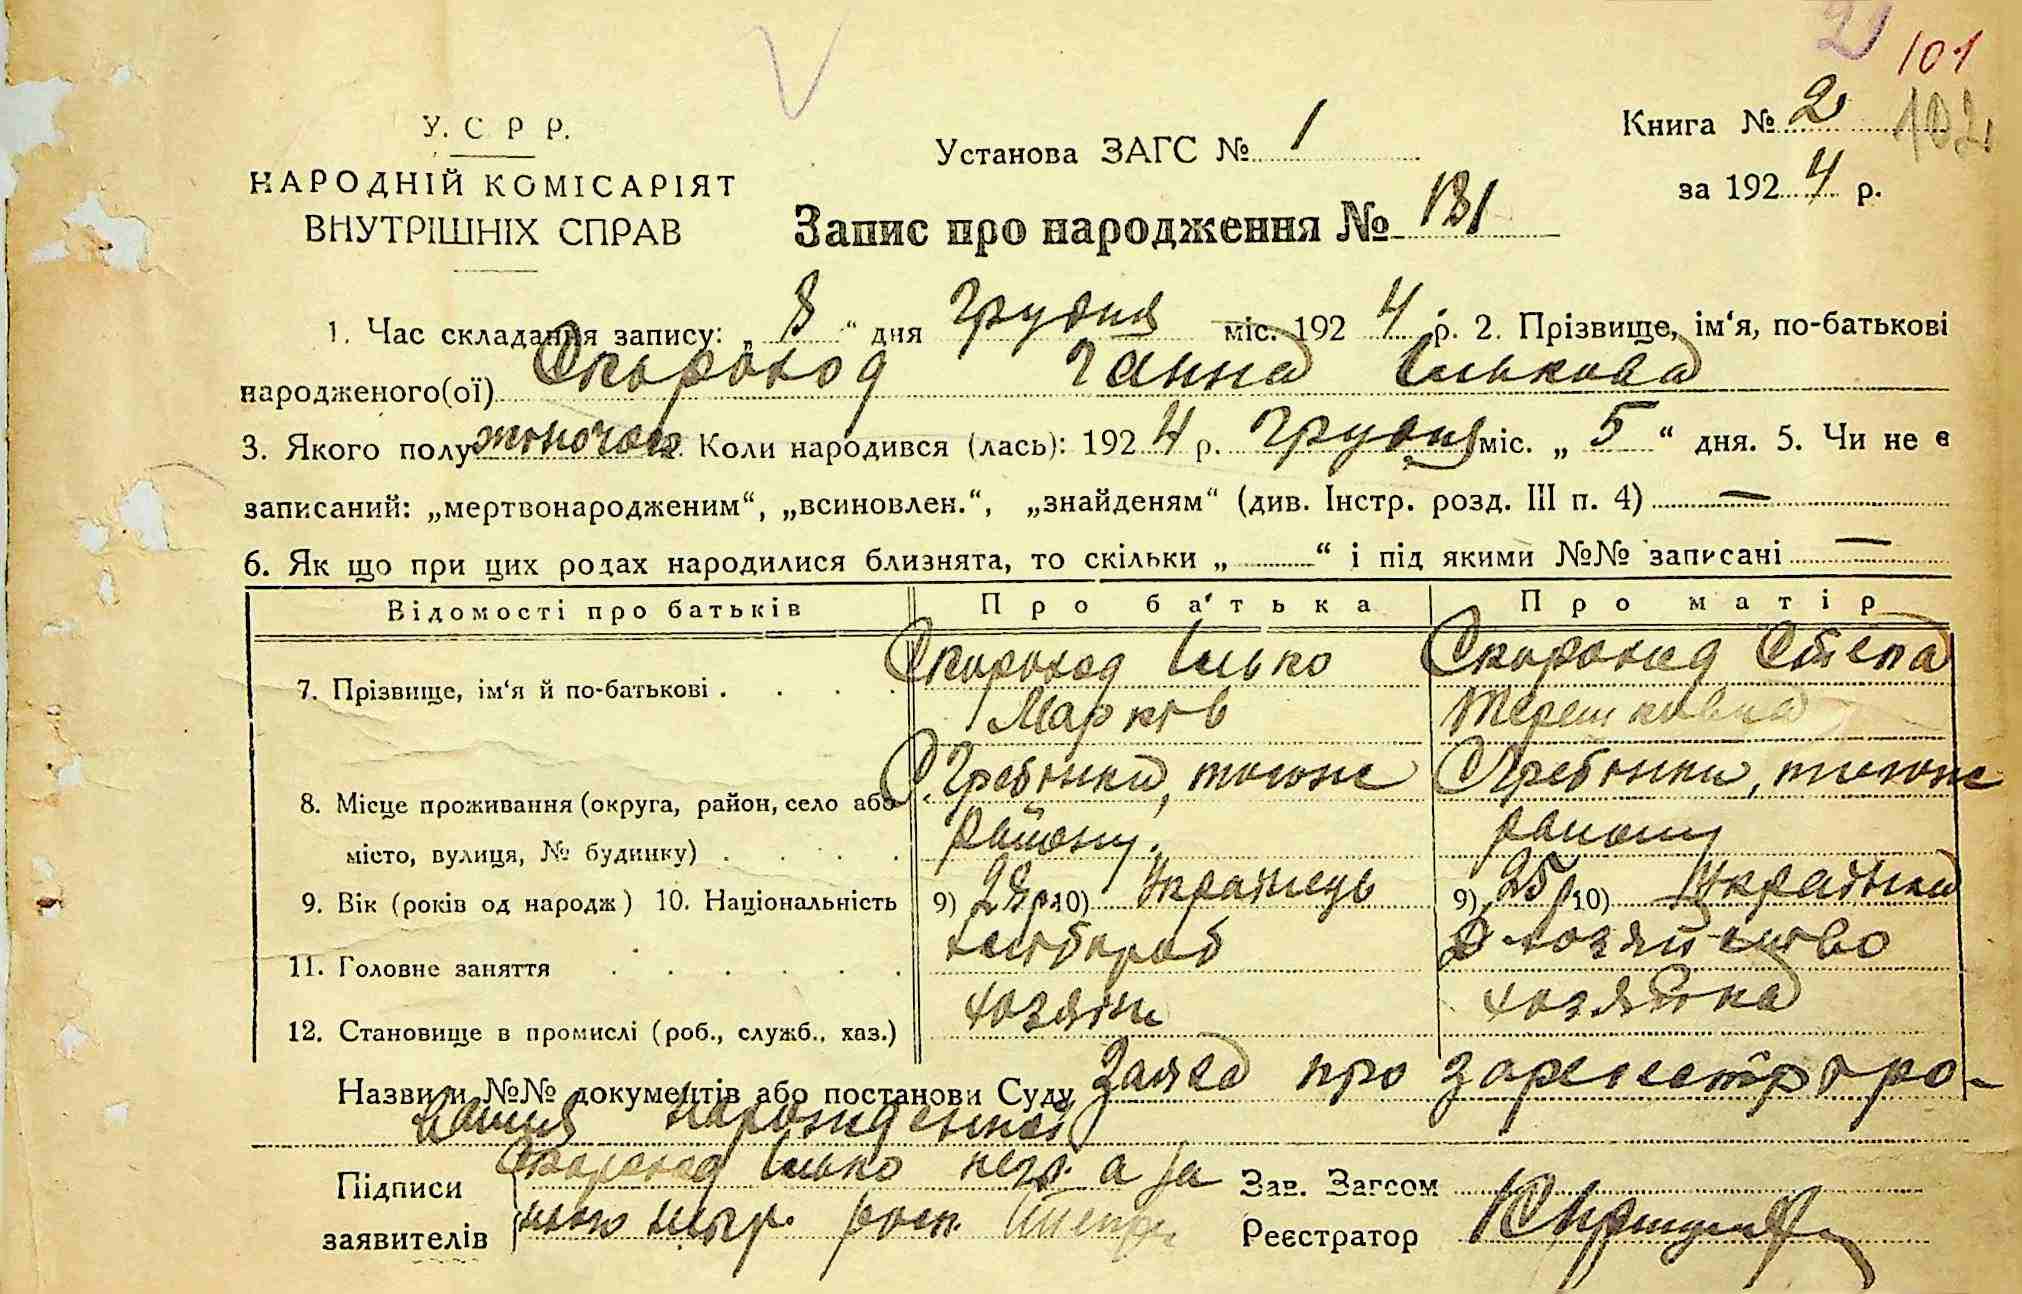 2 101
102
У. С Р Р.
НАРОДНІЙ КОМІСАРІЯТ
ВНУТРІШНІХ СПРАВ
Установа ЗАГС № 1
Книга № 2
за 1924 р.
Запис про народження № 131
1. Час складання запису: „ 8 “ дня грудня міс. 1924 р. 2. Прізвище, ім‘я, по-батькові
народженого(ої) Скороход Ганна Ількова
3. Якого полу жіночого Коли народився (лась): 1924 р. грудня міс. „ 5 “ дня. 5. Чи не є
записаний: „мертвонародженим“, „всиновлен.“, „знайденям“ (див. Інстр. розд. III п. 4) —
6. Як що при цих родах народилися близнята, то скільки „ “ і під якими №№ записані —
Відомості про батьків Про батька Про матір
7. Прізвище, ім‘я й по-батькові . . . . Скороход Ілько Скороход Степа
Марків Терешковна
8. Місце проживання (округа, район, село або С. Гребінки, тогож С. Гребінки, тогож
місто, вулиця, № будинку) . . . . району. району
9. Вік (років од народж) 10. Національність 9) 28 р. 10) Українець 9) 25 р. 10) Українка
11. Головне заняття . . . . . . хлібороб хозяйство
12. Становище в промислі (роб., служб., хаз.) хозяїн хозяйка
Назви й №№ документів або постанови Суду Заява про зарегистріро-
вання нарождення
Підписи Скороход Ілько негр. а за
заявителів нього негр. росп.
Зав. Загсом
Реєстратор